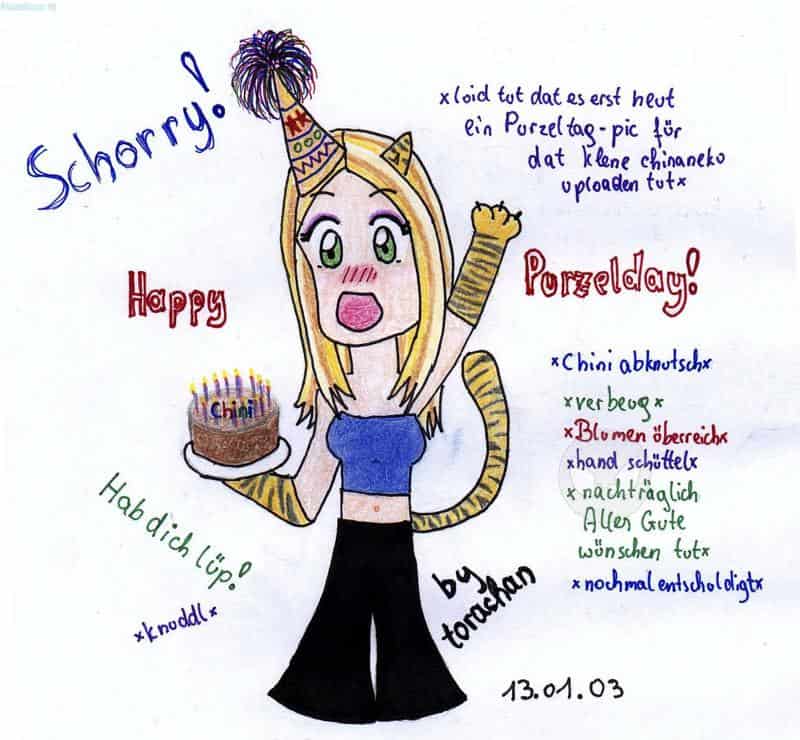 Schorry!
*loid tut dat es erst heut
ein Purzeltag-pic für
dat klene chinaneko
uploaden tut*
Happy
Purzelday!
Chini
*Chini abknutsch*
*verbeug*
*Blumen überreich*
*hand schüttel*
*nachträglich
Alles Gute
wünschen tut*
*nochmal entschuldigt*
Hab dich lüp!
*knuddl*
by
torachan
13.01.03